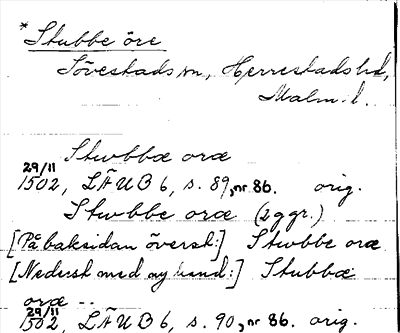 *Stubbe öre
Sövestads sn, Herrestads hd,
Malm. l.
Stwbbæ oræ
29/11
1502, LÄUB 6, s. 89, nr 86. orig.
Stwbbe oræ (2 ggr.)
[På baksidan översk:] Stwbbe oræ
[Nederst med ny hand:] Stubbæ
oræ --
29/11
1502, LÄUB 6, s. 90, nr 86. orig.